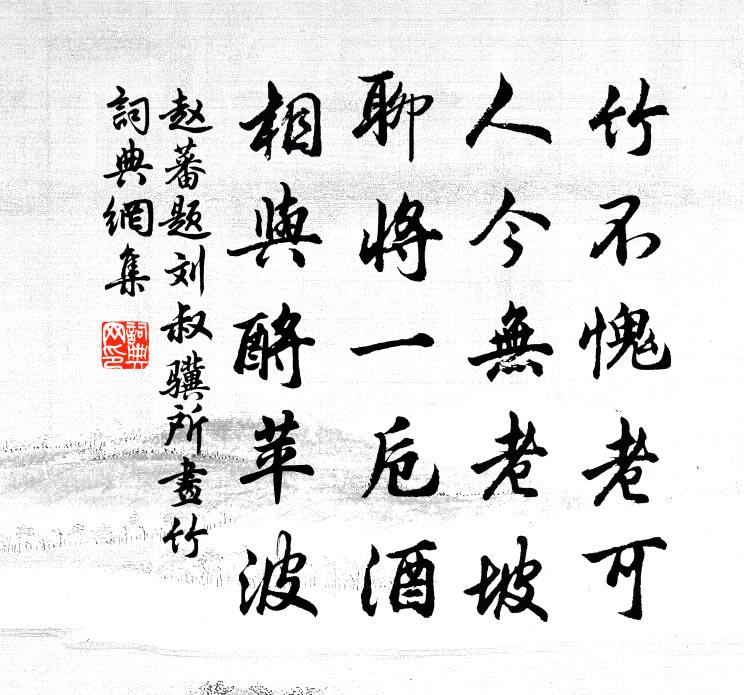 竹不愧老可
人今無老坡
聊將一卮酒
相與酹苹波
赵蕃题刘叔骥所畫竹
詞典網集
詞典網印